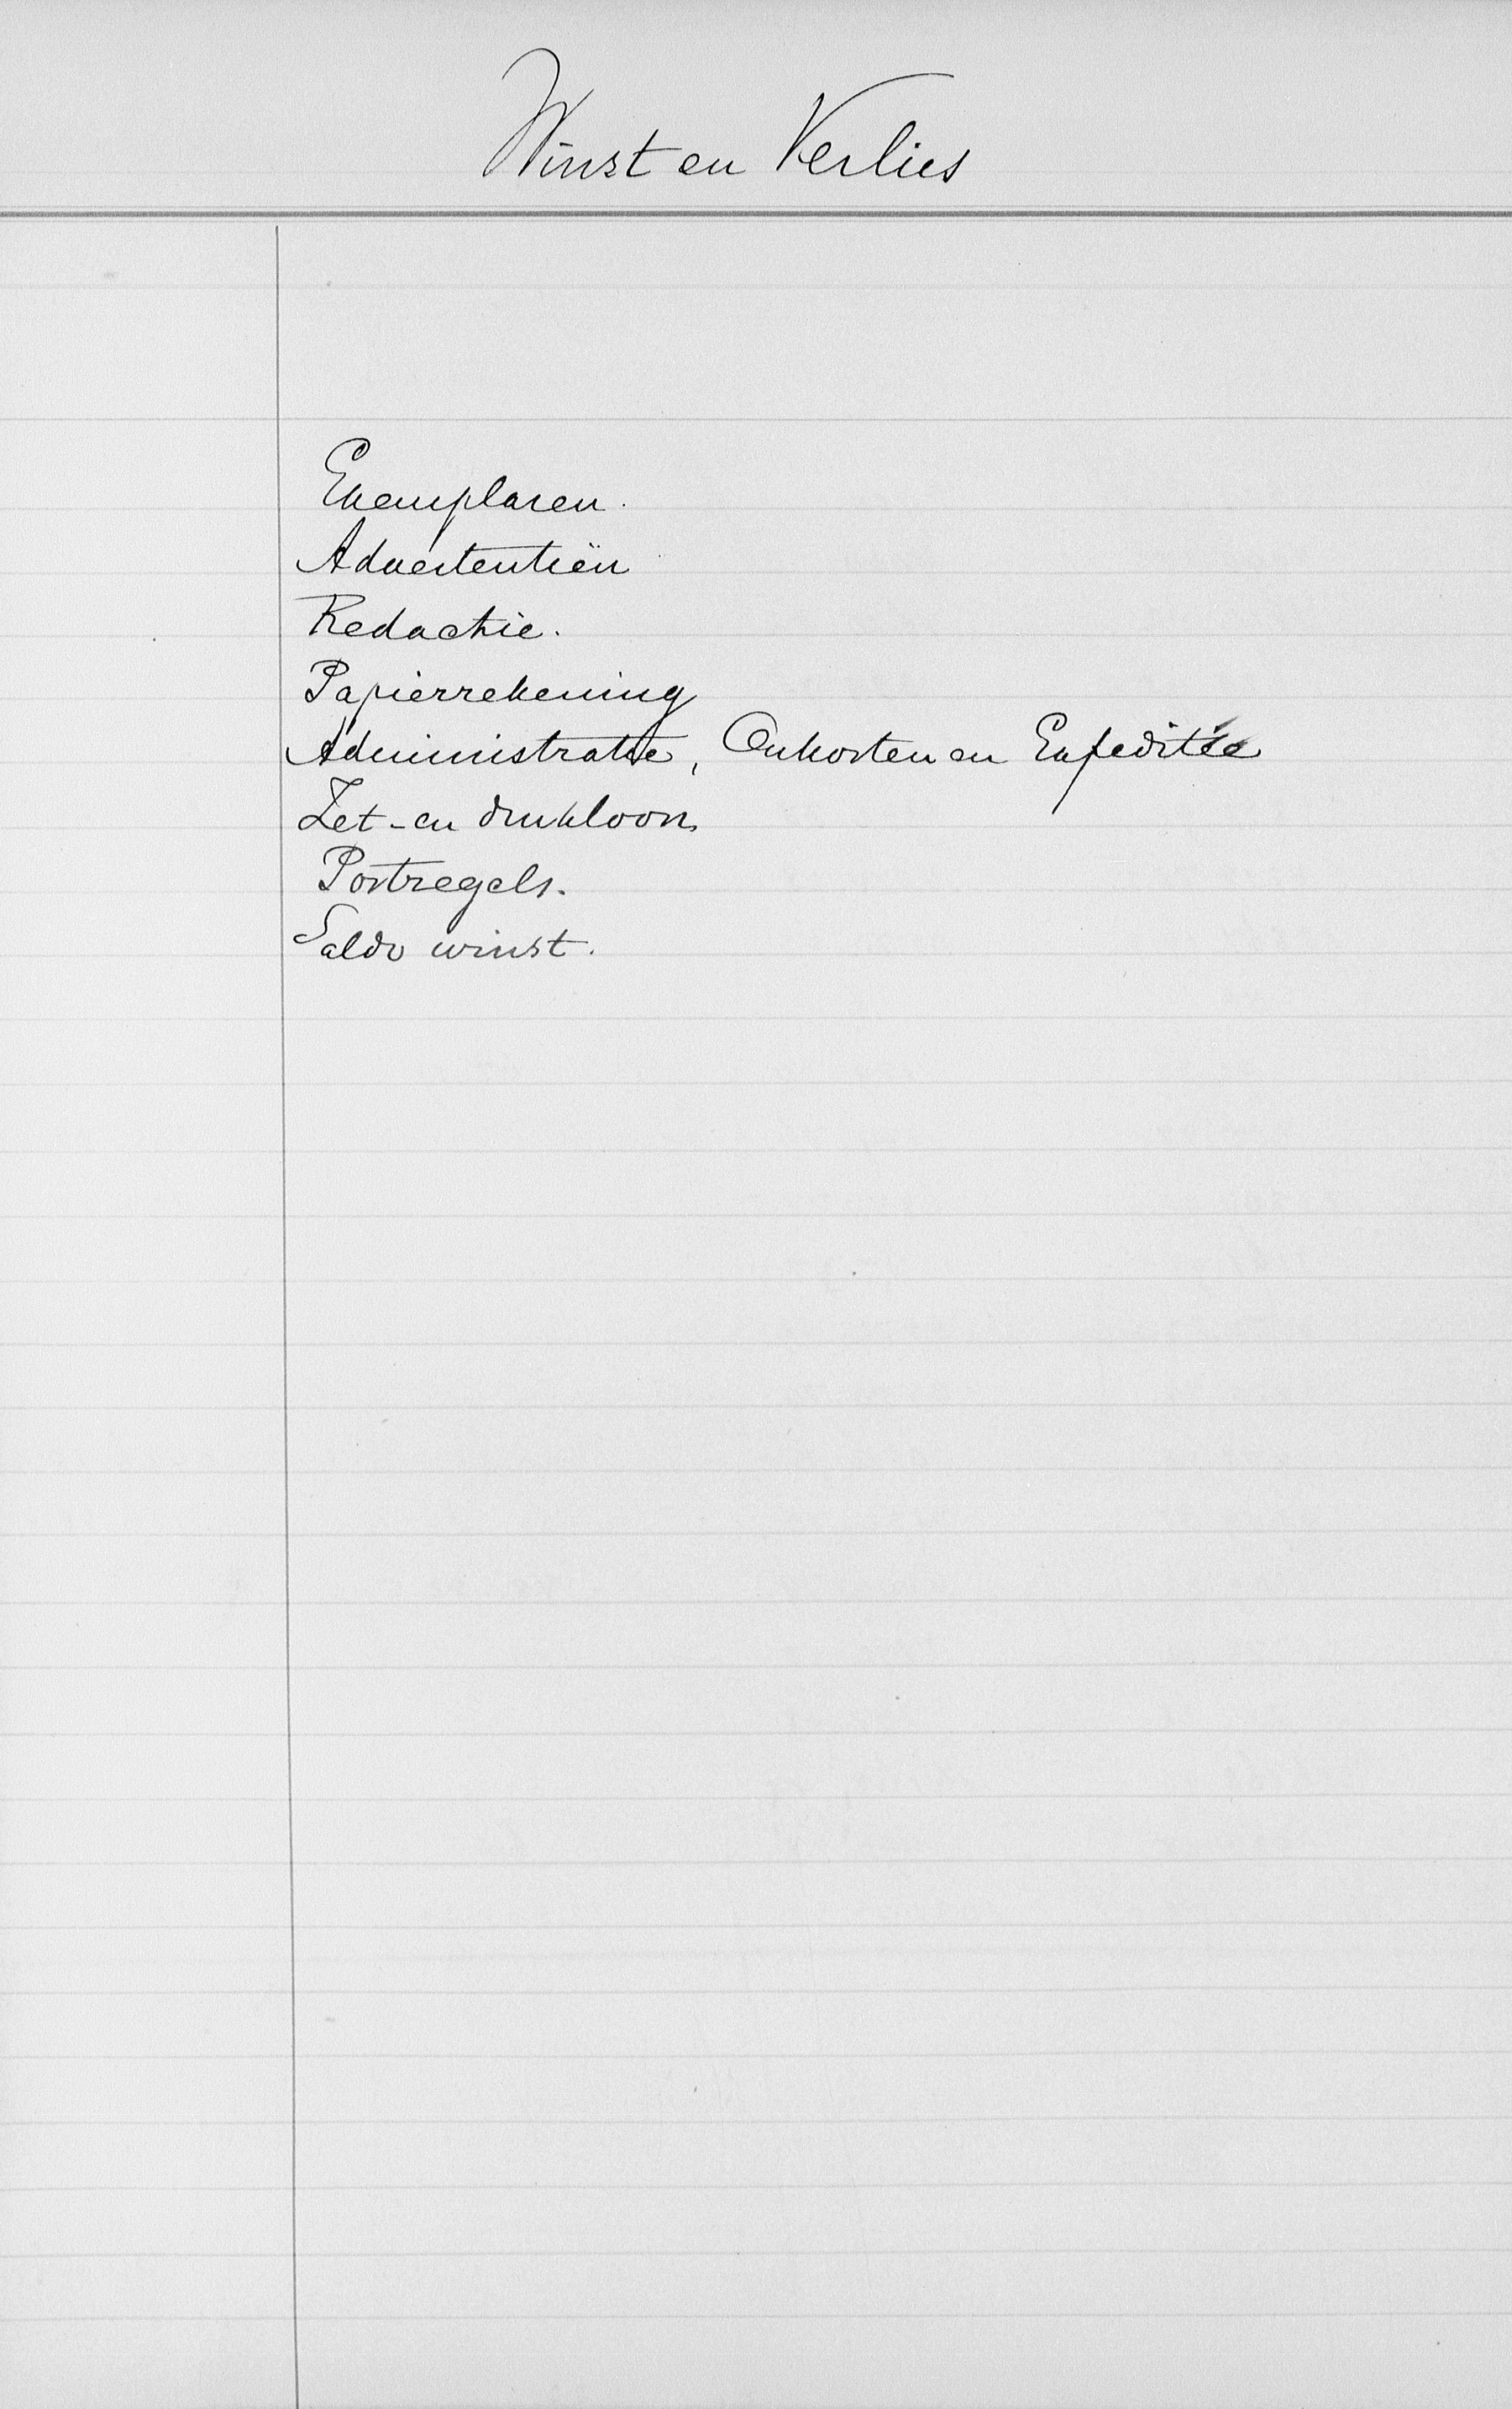 Winst en Verlies
Exemplaren.
Advertentiën
Redactie.
Papierrekening
Administratie, Onkosten en Expeditie
Zet-en drukloon
Postzegels.
Saldo winst.